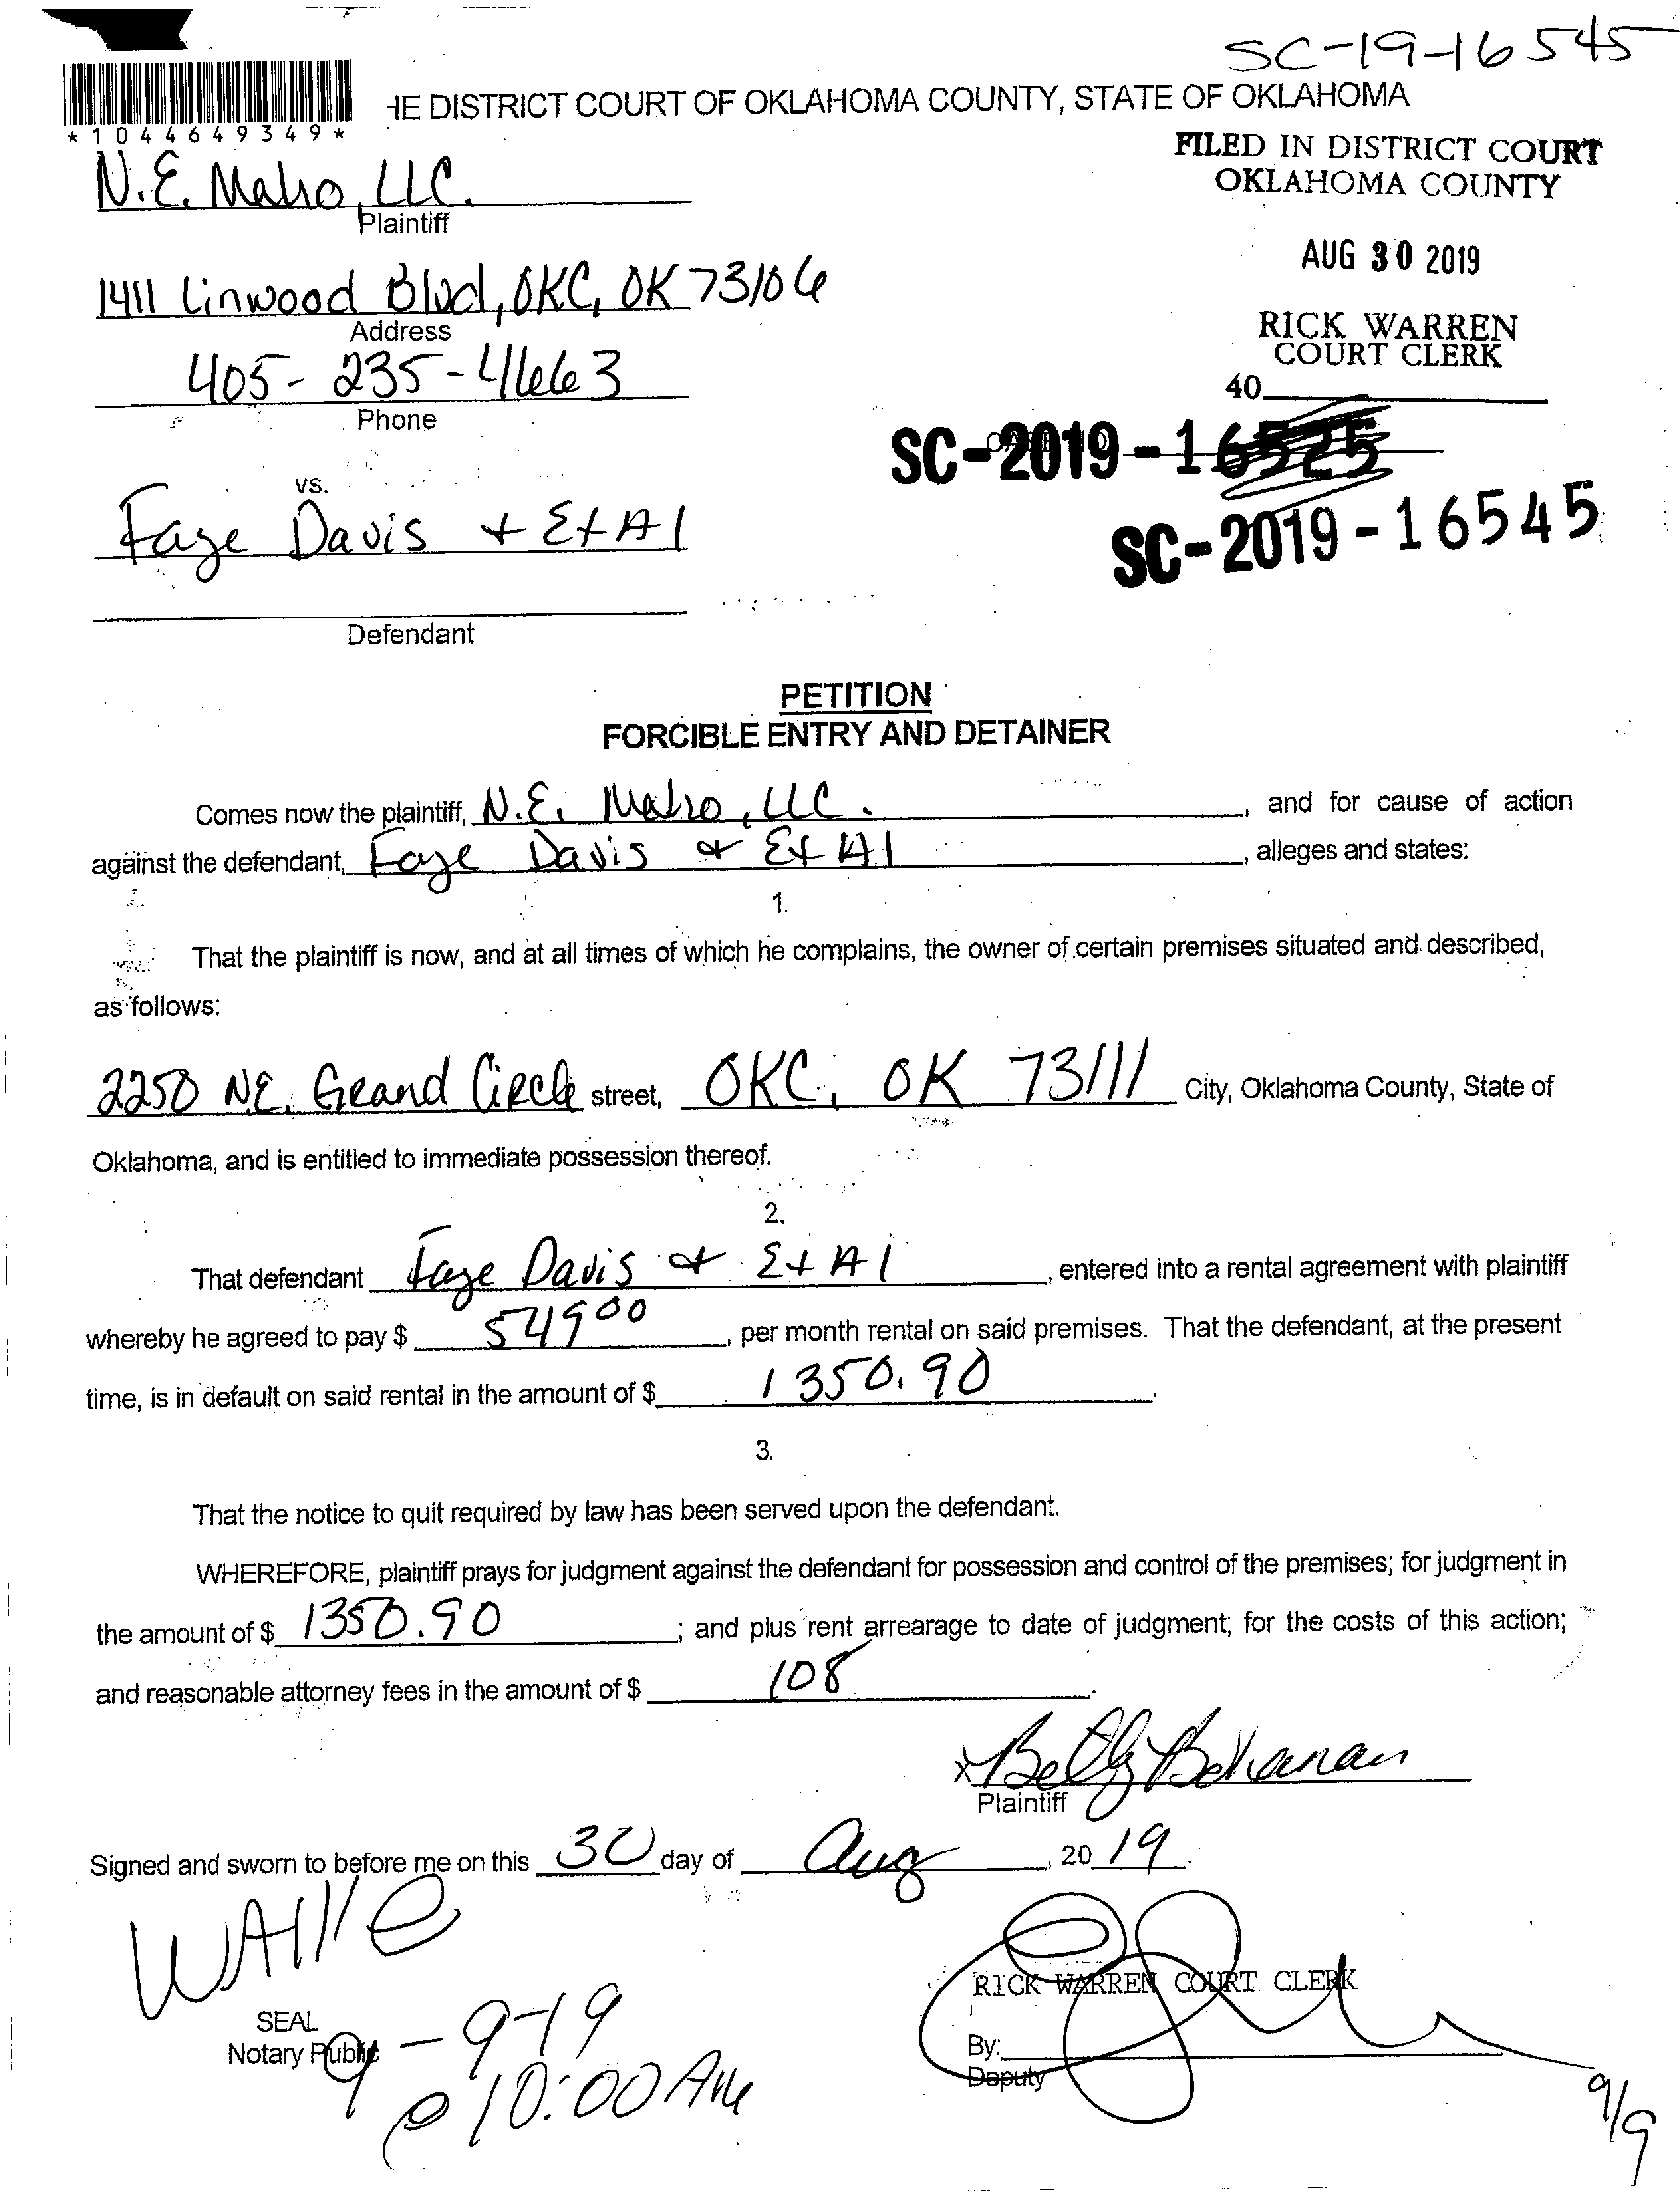 SC-19-16545
HE DISTRICT COURT OF OKLAHOMA COUNTY, STATE OF OKLAHOMA
*1044649349*
FILED IN DISTRICT COURT
OKLAHOMA COUNTY
N.E. Mabro, LLC.
Plaintiff
AUG 30 2019
1411 Linwood Blvd, OKC, OK 73106
Address
RICK WARREN
COURT CLERK
405-235-4663
Phone
40
SC-2019-16525
vs.
Faye Davis + Et Al
SC-2019-16545
Defendant
PETITION
FORCIBLE ENTRY AND DETAINER
Comes now the plaintiff, N.E. Mabro, LLC. , and for cause of action
against the defendant, Faye Davis & Et Al , alleges and states:
1.
That the plaintiff is now, and at all times of which he complains, the owner of certain premises situated and described,
as follows:
2250 N.E. Grand Circle street, OKC, OK 73111 City, Oklahoma County, State of
Oklahoma, and is entitled to immediate possession thereof.
2.
That defendant Faye Davis & Et Al , entered into a rental agreement with plaintiff
whereby he agreed to pay $ 549 00 , per month rental on said premises. That the defendant, at the present
time, is in default on said rental in the amount of $ 1350.90 .
3.
That the notice to quit required by law has been served upon the defendant.
WHEREFORE, plaintiff prays for judgment against the defendant for possession and control of the premises; for judgment in
the amount of $ 1350.90 ; and plus rent arrearage to date of judgment; for the costs of this action;
and reasonable attorney fees in the amount of $ 108 .
x Betty Bohanan
Plaintiff
Signed and sworn to before me on this 30 day of Aug , 20 19.
RICK WARREN COURT CLERK
SEAL
Notary Public
9-9-19
By:
Deputy
@ 10:00 AM
9/9